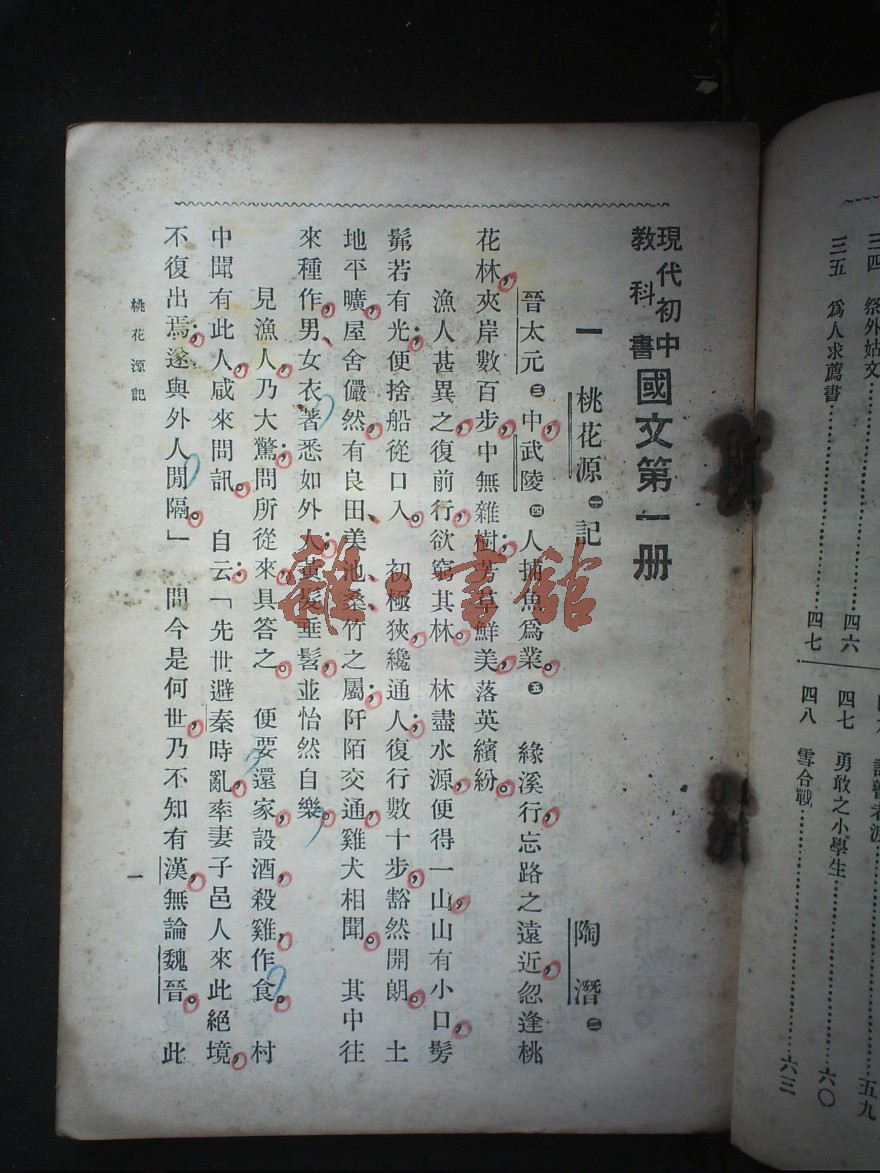 三四　祭外姑文⋯⋯四六
三五　爲人求薦書⋯⋯四七
五九
四七　勇敢之小學生⋯⋯六〇
四八　雪合戰⋯⋯六三
現代初中教科書國文第一册
一　桃花源㊀記
陶潛㊁
晉太元㊂中，武陵㊃人捕魚爲業。㊄　緣溪行，忘路之遠近，忽逢桃
花林，夾岸數百步，中無雜樹；芳草鮮美，落英繽紛。
漁人甚異之，復前行，欲窮其林。　林盡水源，便得一山，山有小口，髣
髴若有光；便捨船從口入。　初極狹，纔通人；復行數十步，豁然開朗。　土
地平曠，屋舍儼然，有良田、美池、桑竹之屬；阡陌交通，雞犬相聞。　其中往
來種作，男、女衣著悉如外人；黃髮垂髫，並怡然自樂。
見漁人，乃大驚；問所從來，具答之。　便要還家，設酒，殺雞作食。　村
中聞有此人，咸來問訊。　自云：「先世避秦時亂，率妻子邑人來此絕境，
不復出焉；遂與外人閒隔。」　問今是何世，乃不知有漢，無論魏晉。　此
桃花源記
一
雜·書館